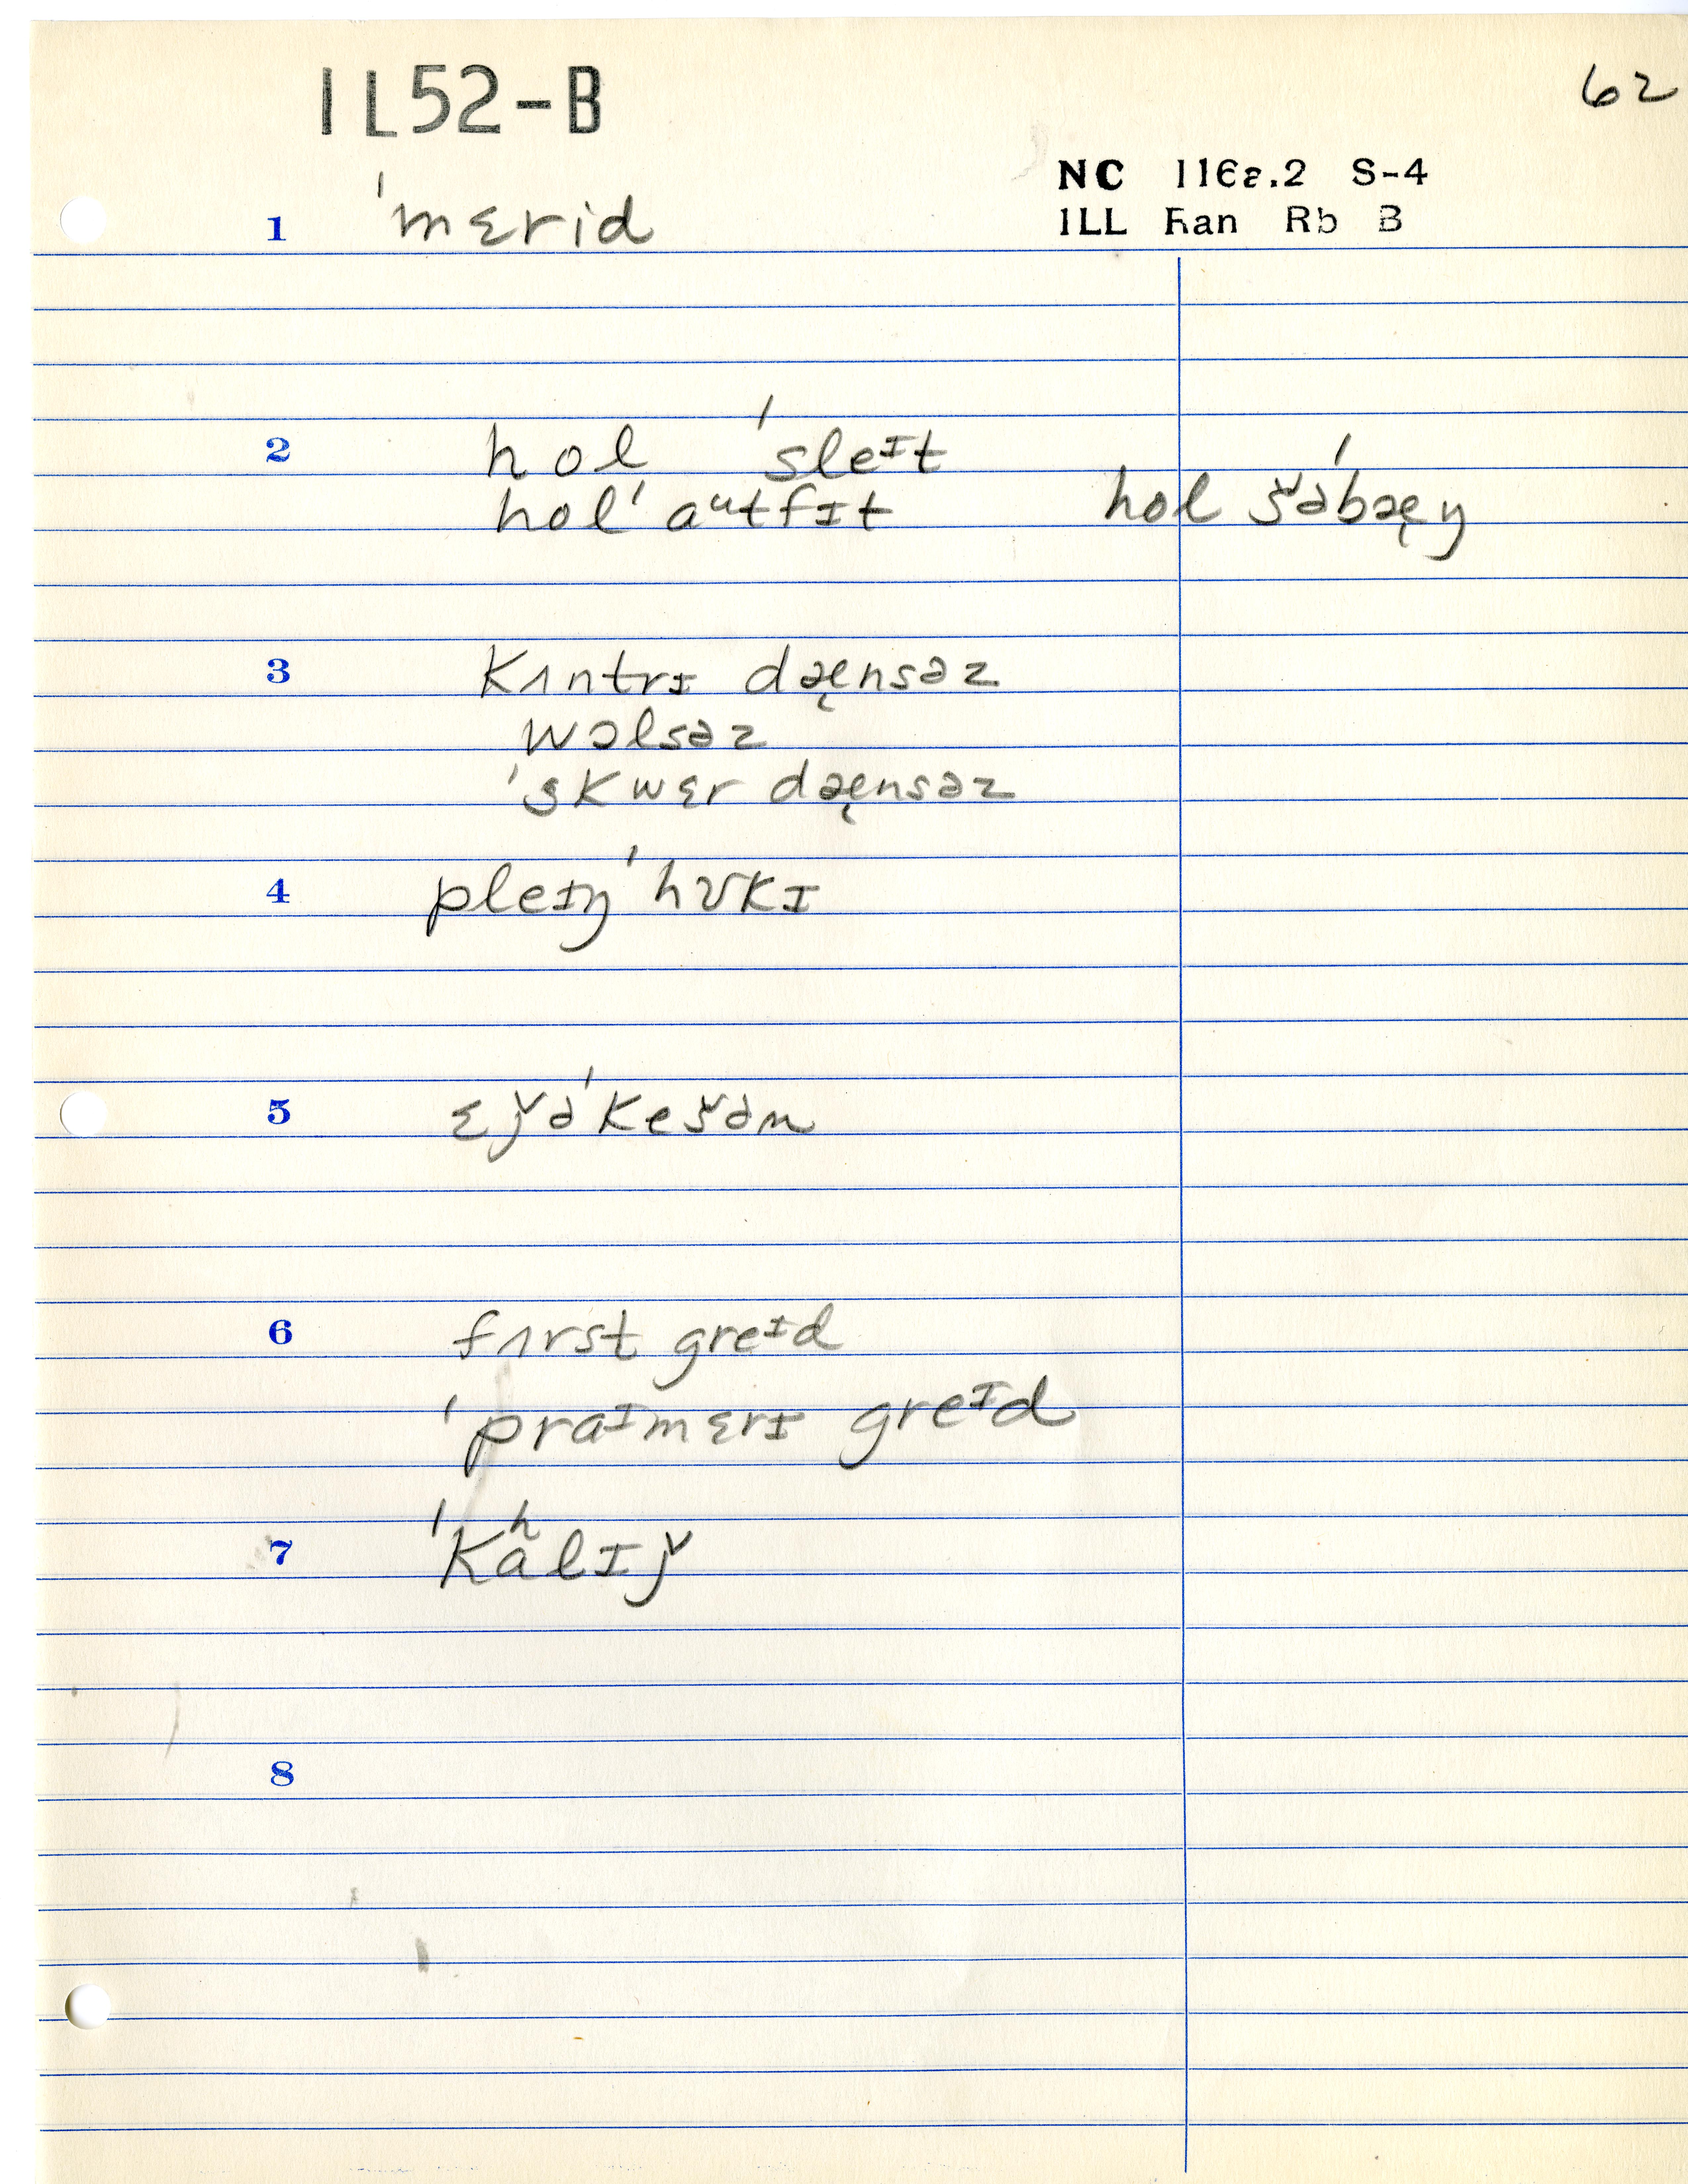 IL52-B
62
NC 116a.2 S-4
ILL Han Rb B
1 ˈmɛrid
2 hol ˈsleᴵt
holˈaᵘtfɪt hol š̌əˈbæ̨ŋ
3 kʌntrɪ dæ̨nsəz
wɔlsəz
ˈskwɛr dæ̨nsəz
4 pleɪŋˈhʊkɪ
5 ɛǰəˈkešən
6 fʌrst greᴵd
ˈpraᴵmɛrɪ greᴵd
7 ˈkʰalɪǰ
8